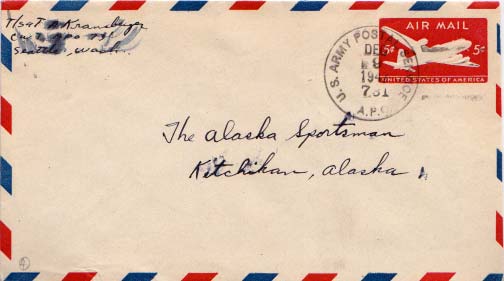 T/Sgt Kransberger
APO 731
Seattle, Wash.
U.S. ARMY POSTAL SERVICE
DEC
194
731
A.P.O.
AIR MAIL
5¢ 5¢
UNITED STATES OF AMERICA
The Alaska Sportsman
Ketchikan, Alaska
4